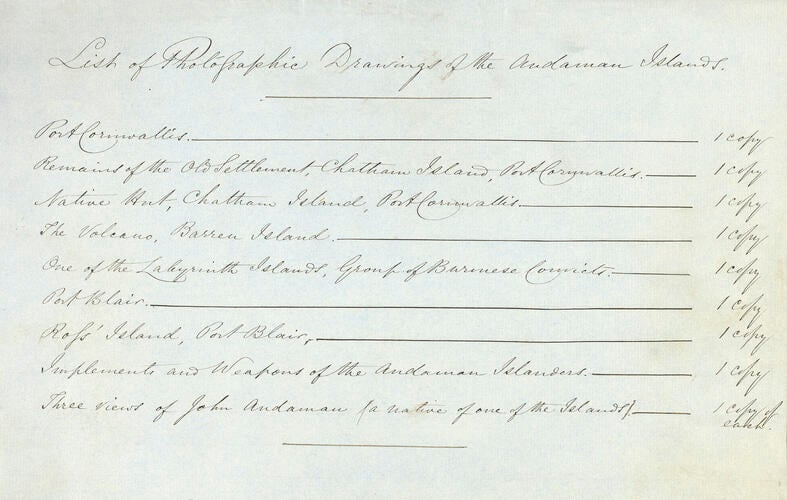 List of Photographic Drawings of the Andaman Islands.
Port Cornwallis. 1 copy
Remains of the Old Settlement, Chatham Island, Port Cornwallis. 1 copy
Native Hut, Chatham Island, Port Cornwallis. 1 copy
The Volcano, Barren Island. 1 copy
One of the Labyrinth Islands, Group of Burmese Convicts. 1 copy
Port Blair. 1 copy
Ross' Island, Port Blair, 1 copy
Implements and Weapons of the Andaman Islanders. 1 copy
Three views of John Andaman (a native of one of the Islands). 1 copy of
each.